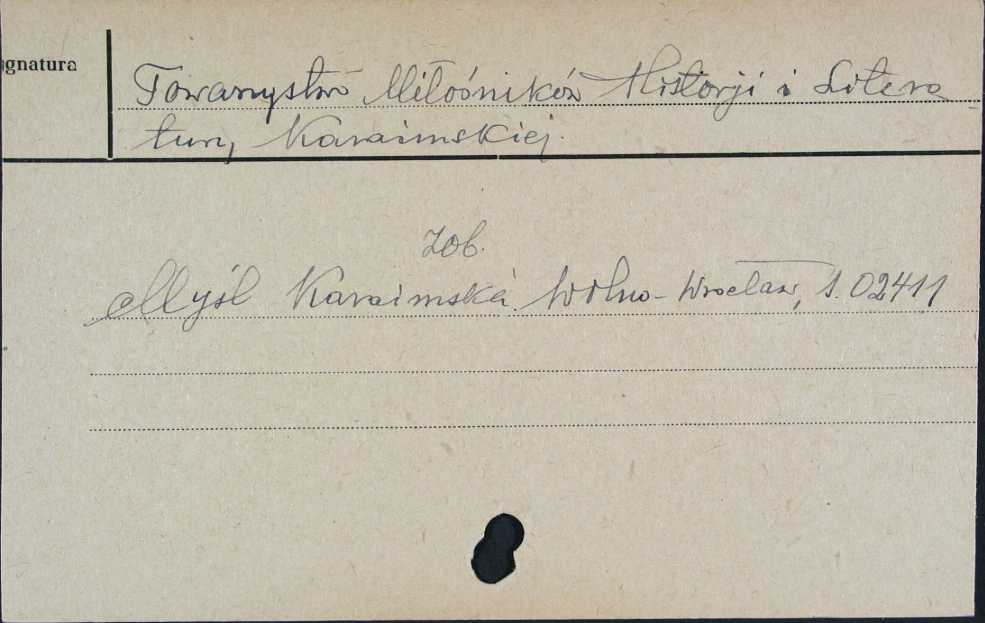 ygnatura
Towarzystwo Miłośników Historji i Litera
tury Karaimskiej.
zob.
Myśl Karaimska. Wilno-Wrocław, s. 02411